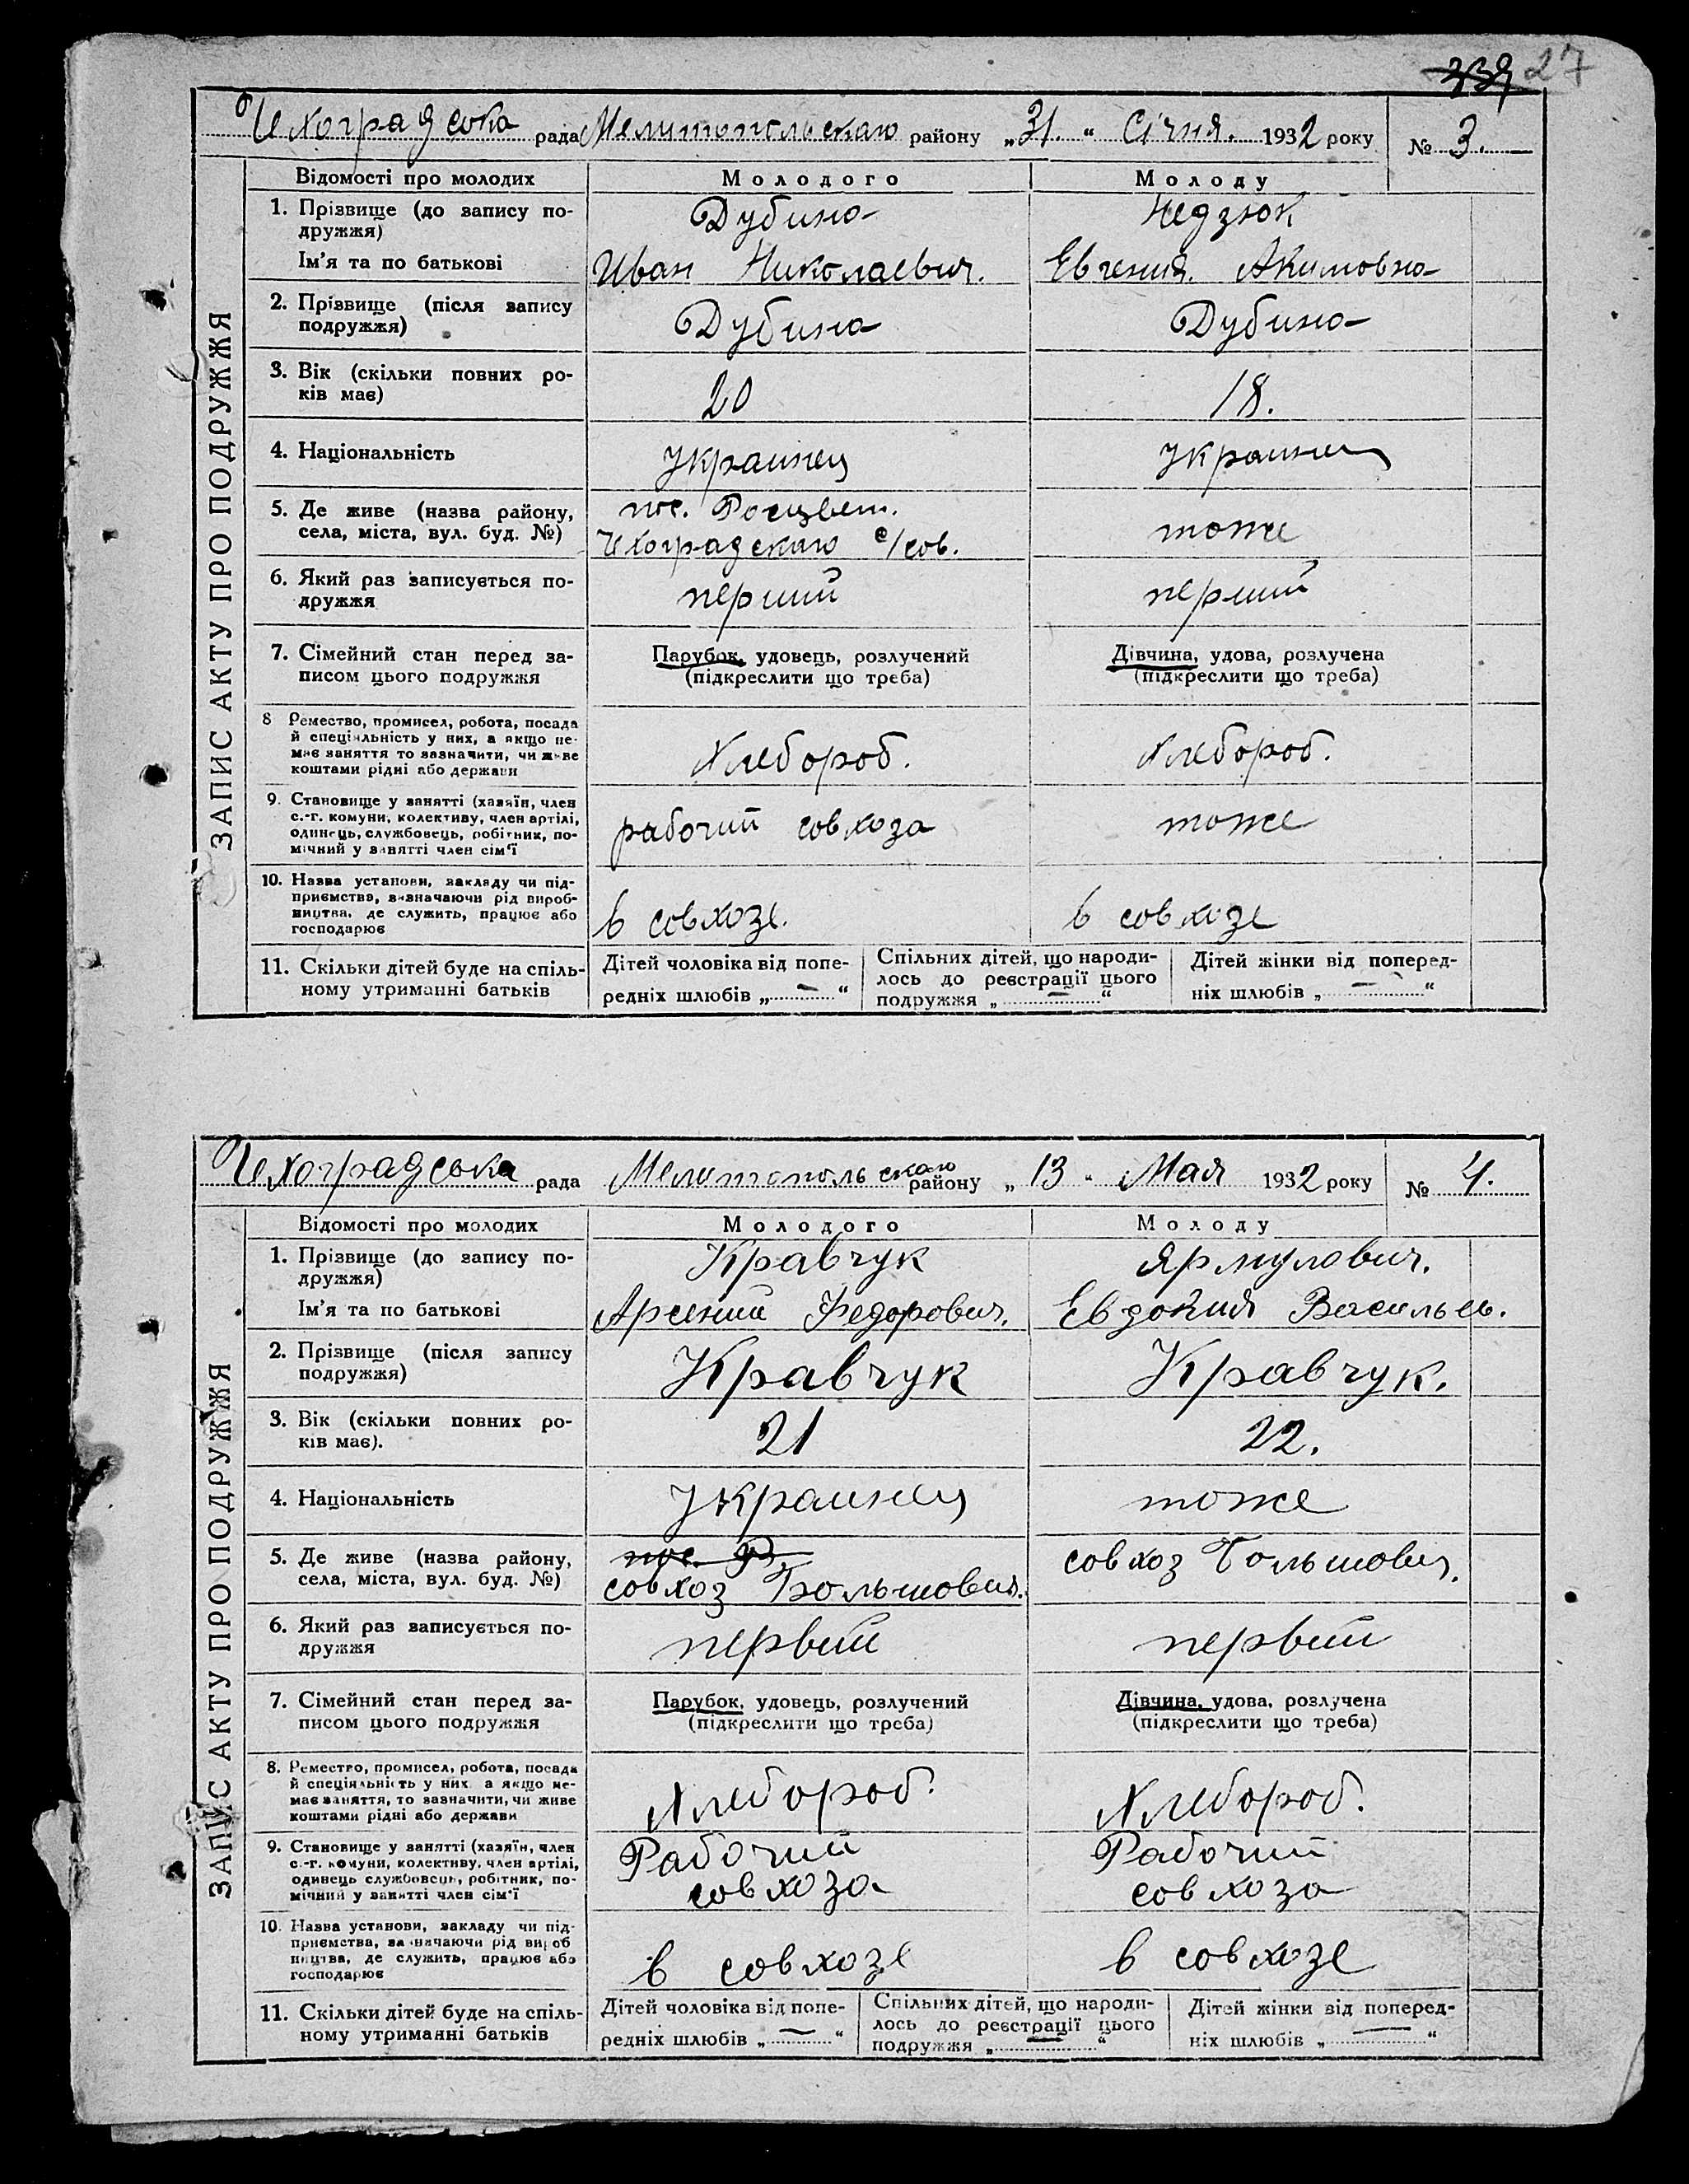 339 27
Чехоградська рада Мелитопольскаго району „31.“ Січня. 1932 року № 3.
ЗАПИС АКТУ ПРО ПОДРУЖЖЯ
Відомості про молодих Молодого Молоду
1. Прізвище (до запису по- Дубина Недзюк
дружжя)
Ім'я та по батькові Иван Николаевич. Евгения. Акимовна
2. Прізвище (після запису Дубина Дубина
подружжя)
3. Вік (скільки повних ро- 20 18.
ків має)
4. Національність Украинец Украинец
5. Де живе (назва району, пос. Росцвет.
села, міста, вул. буд. №) Чехоградскаго с/сов. тоже
6. Який раз записується по- перший перший
дружжя
7. Сімейний стан перед за- Парубок, удовець, розлучений Дівчина, удова, розлучена
писом цього подружжя (підкреслити що треба) (підкреслити що треба)
8 Ремество, промисел, робота, посада
й спеціяльність у них, а якщо не-
має заняття то зазначити, чи живе Хлебороб. Хлебороб.
коштами рідні або держави
9. Становище у занятті (хазяїн, член
с.-г. комуни, колективу, член артілі,
одинець, службовець, робітник, по- рабочий совхоза тоже
мічний у занятті член сім'ї
10. Назва установи, закладу чи під-
приємства, визначаючи рід вироб-
ництва, де служить, працює або в совхозе. в совхозе
господарює
11. Скільки дітей буде на спіль- Дітей чоловіка від попе- Спільних дітей, що народи- Дітей жінки від поперед-
ному утриманні батьків редніх шлюбів „ — “ лось до реєстрації цього ніх шлюбів „ — “
подружжя „ — “
Чехоградська рада Мелитопольскаго району „13“ Мая 1932 року № 4.
ЗАПИС АКТУ ПРО ПОДРУЖЖЯ
Відомості про молодих Молодого Молоду
1. Прізвище (до запису по- Кравчук Ярмулович.
дружжя)
Ім'я та по батькові Арсений Федорович. Евдокия Васильев.
2. Прізвище (після запису Кравчук Кравчук.
подружжя)
3. Вік (скільки повних ро- 21 22.
ків має).
4. Національність Украинец тоже
5. Де живе (назва району, пос. Р. совхоз Большовик.
села, міста, вул. буд. №) совхоз Большовик.
6. Який раз записується по- первий первий
дружжя
7. Сімейний стан перед за- Парубок, удовець, розлучений Дівчина, удова, розлучена
писом цього подружжя (підкреслити що треба) (підкреслити що треба)
8. Ремество, промисел, робота, посада
й спеціяльність у них а якщо не-
має заняття, то зазначити, чи живе Хлебороб. Хлебороб.
коштами рідні або держави
9. Становище у занятті (хазяїн, член Рабочий Рабочий
с.-г. комуни, колективу, член артілі,
одинець службовець, робітник, по- совхоза совхоза
мічний у занятті член сім'ї
10. Назва установи, закладу чи під-
приємства, зазначаючи рід вироб
ництва, де служить, працює або в совхозе в совхозе
господарює
11. Скільки дітей буде на спіль- Дітей чоловіка від попе- Спільних дітей, що народи- Дітей жінки від поперед-
ному утриманні батьків редніх шлюбів „ — “ лось до реєстрації цього ніх шлюбів „ — “
подружжя „ — “